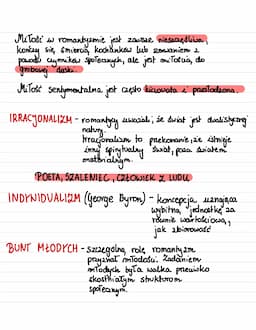 Miłość w romantyzmie jest zawsze nieszczęśliwa,
kończy się, śmiercią, kochanków lub zerwaniem z
powodu czynników społecznych, ale jest miłością, do
grobowej deski.
Miłość sentymentalna jest często
IRRACJONALIZM - romantycy uważali, że świat jest dualistycznej
natury.
Irracjonalizm to przekonanie, że istnieje
inny spirytualny świat, poza światem
materialnym.
POETA, SZALENIEC, CZŁOWIEK Z LUDU
INDYWIDUALIZM (George Byron) - koncepcja uznająca
wybitną jednostkę za
równie wartościową,
jak zbiorowość
BUNT MŁODYCH - szczególną rolę romantyzm
przyznał młodości. Zadaniem
młodych była walka przeciwko
skostniałym strukturom
społecznym.